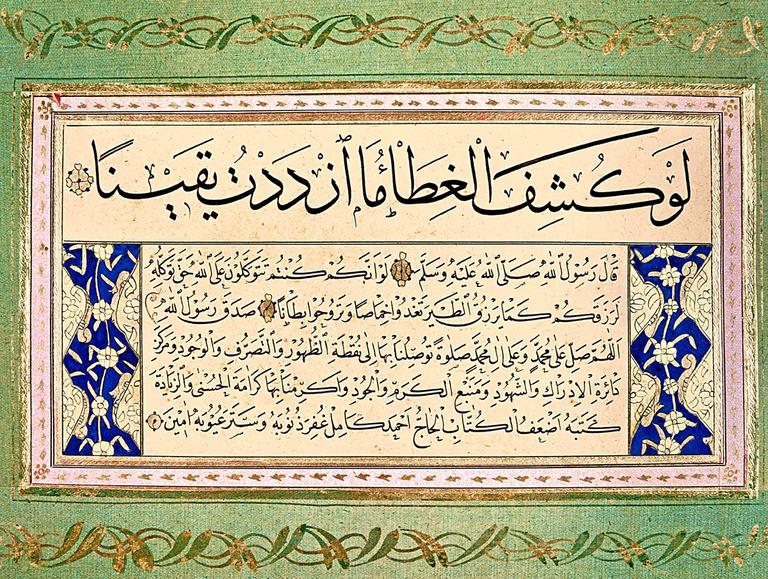 لَوْ كُشِفَ الْغِطَاءُ مَا ازْدَدْتُ يَقِينًا
قَالَ رَسُولُ اللّٰهِ صَلَّى اللّٰهُ عَلَيْهِ وَسَلَّمَ لَوْ أَنَّكُمْ كُنْتُمْ تَتَوَكَّلُونَ عَلَى اللّٰهِ حَقَّ تَوَكُّلِهِ
لَرَزَقَكُمْ كَمَا يَرْزُقُ الطَّيْرَ تَغْدُوا خِمَاصًا وَتَرُوحُوا بِطَانًا صَدَقَ رَسُولُ اللّٰهِ
اللّٰهُمَّ صَلِّ عَلَى مُحَمَّدٍ وَعَلَى اٰلِ مُحَمَّدٍ صَلٰوةً تُوصِلُنَا بِهَا اِلَى نُقْطَةِ الظُّهُورِ وَالتَّصَرُّفِ وَالْوُجُودِ وَمَرْكَزِ
دَائِرَةِ الْاِدْرَاكِ وَالشُّهُودِ وَمَنْبَعِ الْكَرَمِ وَالْجُودِ وَاَكْرِمْنَا بِهَا كَرَامَةَ الْحُسْنٰى وَالزِّيَادَةَ
كَتَبَهُ اَضْعَفُ الْكُتَّابِ الْحَاجُّ اَحْمَدْ كَامِلْ غُفِرَ ذُنُوبُهُ وَسُتِرَ عُيُوبُهُ اٰمِينَ